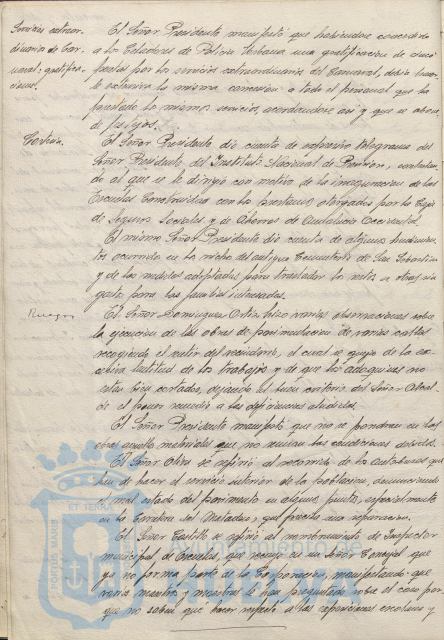 Servicios extraor-
dinarios de Car-
naval; gratifica-
ciones.
El Señor Presidente manifestó que habiéndose concedido
a los Celadores de Policía Urbana una gratificación de cinco
pesetas por los servicios extraordinarios del Carnaval, debía hacer-
le extensiva la misma concesión a todo el personal que ha
prestado los mismos servicios, acordándose así y que se abone
de festejos.
Cortesía.
El Señor Presidente dio cuenta de expresivo telegrama del
Señor Presidente del Instituto Nacional de Previsión, contestan-
do al que se le dirigió con motivo de la inauguración de las
Escuelas construidas con los préstamos otorgados por la Caja
de Seguros Sociales y de Ahorros de Andalucía Occidental.
El mismo Señor Presidente dio cuenta de algunos hundimien-
tos ocurridos en los nichos del antiguo Cementerio de San Sebastián
y de las medidas adoptadas para trasladar los restos a otros sin
gasto para las familias interesadas.
Ruegos
El Señor Domínguez Ortiz hizo varias observaciones sobre
la ejecución de las obras de pavimentación de varias calles
recogiendo el sentir del vecindario, el cual se queja de la ex-
cesiva lentitud de los trabajos y de que los adoquines no
están bien cortados, dejando al buen criterio del Señor Alcal-
de el poner remedio a las deficiencias aludidas.
El Señor Presidente manifestó que no se pondrán en las
obras aquellos materiales que no reúnan las condiciones debidas.
El Señor Oliva se refirió al recorrido de los autobuses que
han de hacer el servicio interior de la población, denunciando
el mal estado del pavimento en algunos puntos, especialmente
en la del Matadero, que precisa una reparación.
El Señor Castillo se refirió al nombramiento de Inspector
municipal de Escuelas, que recayó en un Señor Concejal que
ya no forma parte de la Corporación, manifestando que
varios maestros y maestras le han preguntado sobre el caso por-
que no saben qué hacer respecto a las reparaciones escolares y
ET TERRA
PORTUS MARIS